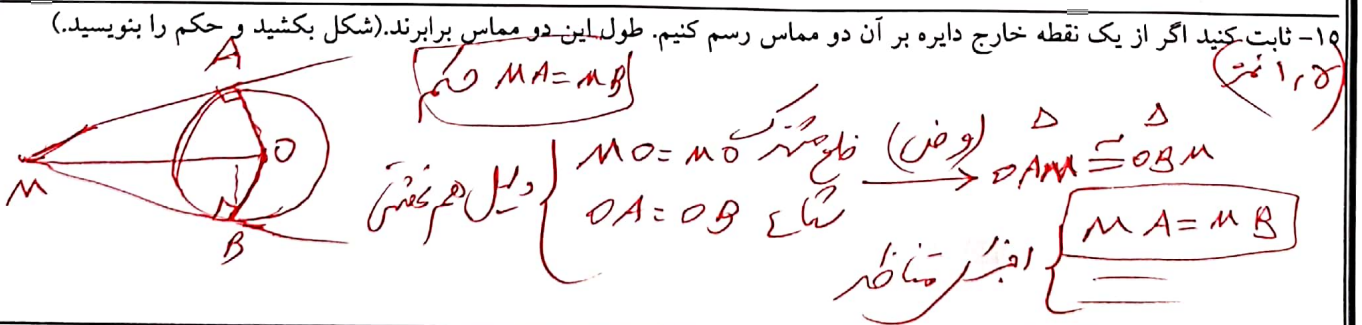 ۱۵- ثابت کنید اگر از یک نقطه خارج دایره بر آن دو مماس رسم کنیم. طول این دو مماس برابرند.(شکل بکشید و حکم را بنویسید.)
۱,۵ نمره
حکم MA=MB
A
M
O
B
دلیل هم نهشتی
MO=MO ضلع مشترک
OA=OB شعاع
(وض)
△ △
OAM ≅ OBM
اجزای متناظر
MA=MB